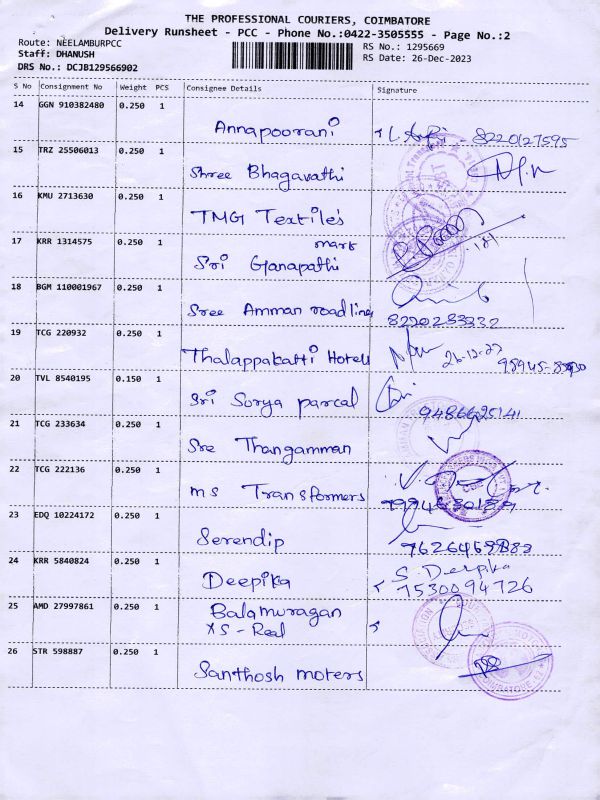 THE PROFESSIONAL COURIERS, COIMBATORE
Delivery Runsheet - PCC - Phone No.:0422-3505555 - Page No.:2
Route: NEELAMBURPCC
Staff: DHANUSH
DRS No.: DCJB129566902
RS No.: 1295669
RS Date: 26-Dec-2023
S No Consignment No Weight PCS Consignee Details Signature
14 GGN 910382480 0.250 1 Annapoorani 8220127595
15 TRZ 25506013 0.250 1 Shree Bhagavathi
16 KMU 2713630 0.250 1 TMG Textile's
mark
17 KRR 1314575 0.250 1 Sri Ganapathi
18 BGM 110001967 0.250 1 Sree Amman roadlines
8220283832
19 TCG 220932 0.250 1 Thalappakatti Hotel 26-12-23
20 TVL 8540195 0.150 1 Sri Sorya parcal
9486625141
21 TCG 233634 0.250 1 Sre Thangamman
22 TCG 222136 0.250 1 ms Transformers
23 EDQ 10224172 0.250 1 Serendip
24 KRR 5840824 0.250 1 Deepika S. Deepika
7530094726
25 AMD 27997861 0.250 1 Balamuragan
XS - Real
26 STR 598887 0.250 1 Santhosh moters